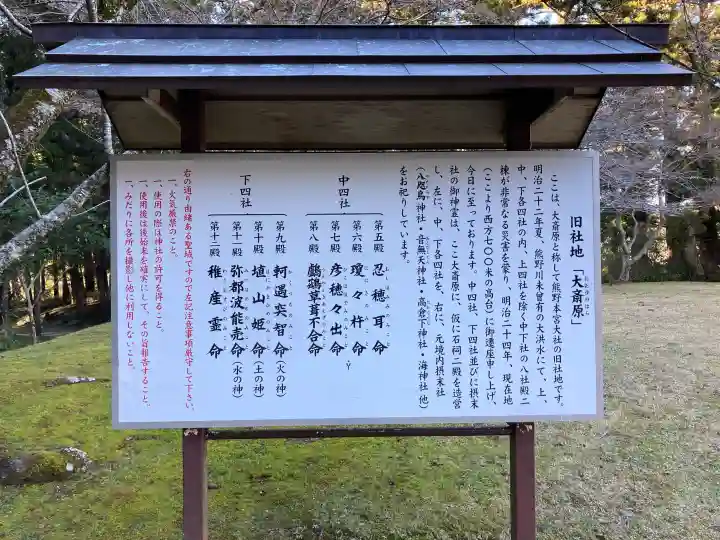 旧社地「大斎原」
ここは、大斎原と称して熊野本宮大社の旧社地です。
明治二十二年夏、熊野川未曾有の大洪水にて、上、
中、下各四社の内、上四社を除く中下社の八社殿二
棟が非常なる災害を蒙り、明治二十四年、現在地
(ここより西方七〇〇米の高台)に御遷座申し上げ、
今日に至っております。中四社、下四社並びに摂末
社の御神霊は、ここ大斎原に、仮に石祠二殿を造営
し、左に、中、下各四社を、右に、元境内摂末社
(八咫烏神社・音無天神社・高倉下神社・海神社 他)
をお祀りしています。
中四社
第五殿 忍穂耳命
第六殿 瓊々杵命
第七殿 彦穂々出命
第八殿 鸕鶿草葺不合命
下四社
第九殿 軻遇突智命(火の神)
第十殿 埴山姫命(土の神)
第十一殿 弥都波能売命(水の神)
第十二殿 稚産霊命
右の通り由緒ある聖域ですので左記注意事項厳守して下さい。
一、火気厳禁のこと。
一、使用の際は神社の許可を得ること。
一、使用後は後始末を確実にして、その旨報告すること。
一、みだりに各所を撮影し他に利用しないこと。